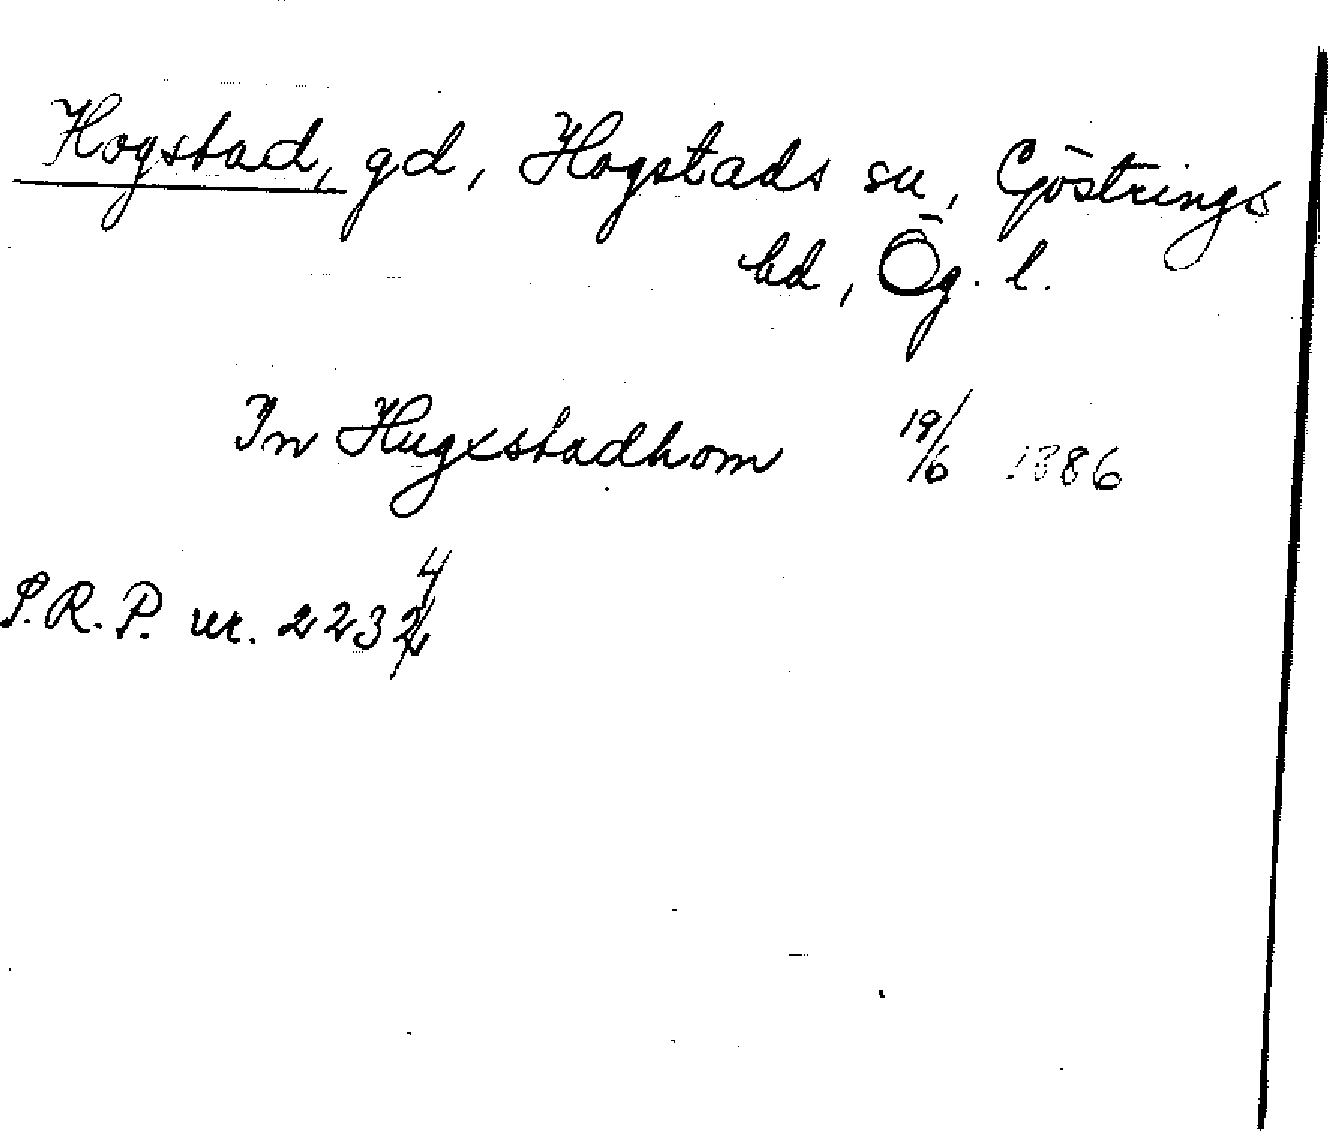 Hogstad, gd, Hogstads sn, Göstrings
hd, Ög. l.
In Hugxstadhom 19/6 1386
P.R.P. nr. 2234